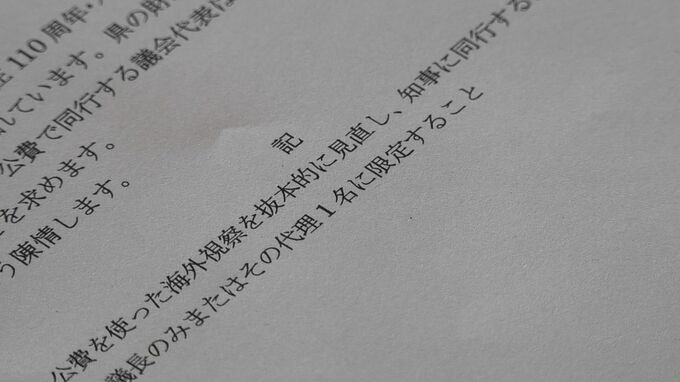 110周年・
しています。県の財
公費で同行する議会代表は
を求めます。
う陳情します。
記
公費を使った海外視察を抜本的に見直し、知事に同行する
議長のみまたはその代理1名に限定すること